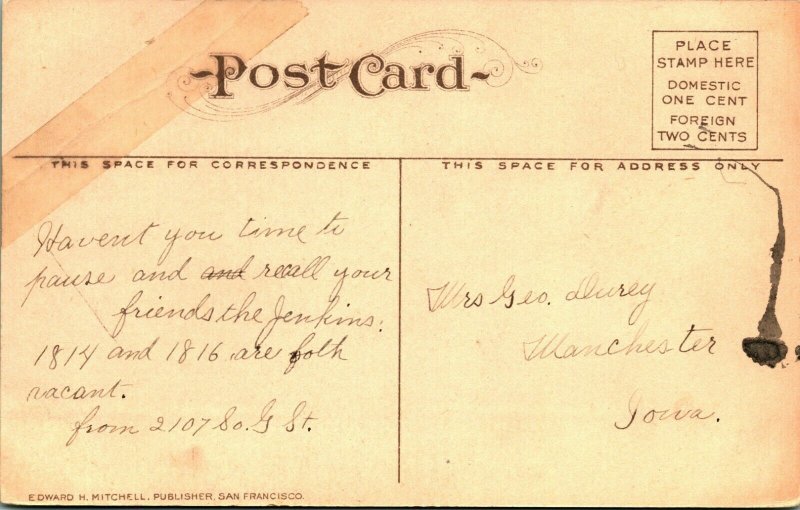 Post Card
PLACE
STAMP HERE
DOMESTIC
ONE CENT
FOREIGN
TWO CENTS
THIS SPACE FOR CORRESPONDENCE
THIS SPACE FOR ADDRESS ONLY
Havent you time to
pause and and recall your
friends the Jenkins.
1814 and 1816 are both
vacant.
from 2107 So. G St.
Mrs Geo. Durey
Manchester
Iowa.
EDWARD H. MITCHELL, PUBLISHER, SAN FRANCISCO.